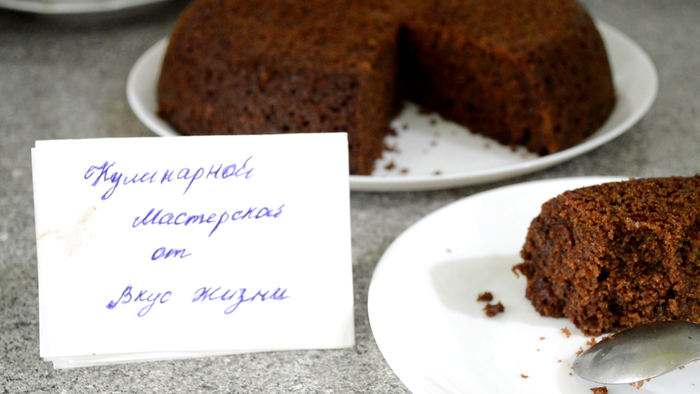 Кулинарной
Мастерской
от
Вкус жизни